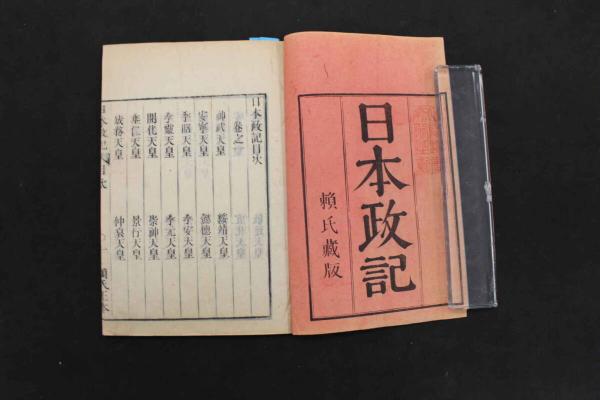 日本政記
賴氏藏版
日本政記目次
卷之一
神武天皇 綏靖天皇
安寧天皇 懿德天皇
孝昭天皇 孝安天皇
孝靈天皇 孝元天皇
開化天皇 崇神天皇
垂仁天皇 景行天皇
成務天皇 仲哀天皇
日本政記 目次